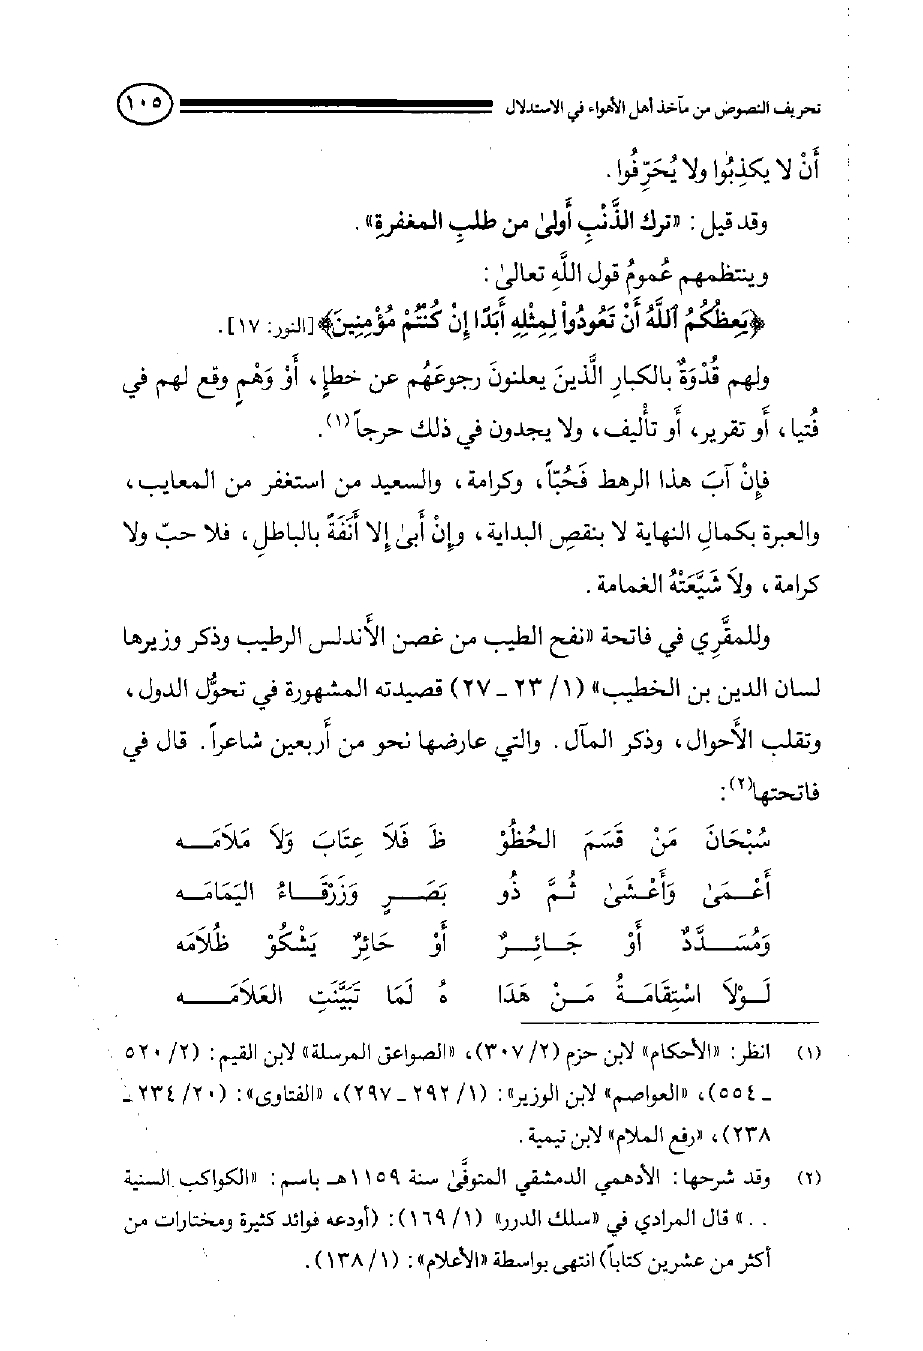 تحريف النصوص من مآخذ أهل الأهواء في الاستدلال ١٠٥
أَنْ لا يكذِبُوا ولا يُحَرِّفُوا .
وقد قيل : «ترك الذَّنْبِ أَولىٰ من طلبِ المغفرةِ» .
وينتظمهم عُمومُ قول اللَّهِ تعالىٰ :
﴿يَعِظُكُمُ ٱللَّهُ أَنْ تَعُودُواْ لِمِثْلِهِ أَبَدًا إِنْ كُنْتُمْ مُؤْمِنِينَ﴾ [النور: ١٧] .
ولهم قُدْوَةٌ بالكبارِ الَّذينَ يعلنونَ رجوعَهُم عن خطإٍ ، أَوْ وَهْمٍ وقع لهم في
فُتيا ، أَو تقرير ، أَو تأْليف ، ولا يجدون في ذلك حرجاً(١) .
فإِنْ آبَ هذا الرهط فَحُبّاً ، وكرامة ، والسعيد من استغفر من المعايب ،
والعبرة بكمالِ النهاية لا بنقصِ البداية ، وإِنْ أَبىٰ إِلا أَنَفَةً بالباطلِ ، فلا حبّ ولا
كرامة ، ولاَ شَيَّعَتْهُ الغمامة .
وللمقَّرِي في فاتحة «نفح الطيب من غصن الأَندلس الرطيب وذكر وزيرها
لسان الدين بن الخطيب» (١/ ٢٣ ـ ٢٧) قصيدته المشهورة في تحوُّل الدول ،
وتقلب الأَحوال ، وذكر المآل . والتي عارضها نحو من أَربعين شاعراً . قال في
فاتحتها(٢) :
سُبْحَانَ مَنْ قَسَمَ الحُظُوْ ظَ فَلاَ عِتَابَ وَلاَ مَلاَمَـــه
أَعْــمَىٰ وَأَعْـشَىٰ ثُــمَّ ذُو بَصَـــرٍ وَزَرْقَــاءُ اليَمَامَــه
وَمُسَــدَّدٌ أَوْ جَــائِــرٌ أَوْ حَائِرٌ يَشْكُوْ ظُلاَمَه
لَــوْلاَ اسْتِقَامَــةُ مَــنْ هَدَا هُ لَمَا تَبَيَّنَتِ العَلاَمَـــه
(١) انظر: «الأحكام» لابن حزم (٢/ ٣٠٧)، «الصواعق المرسلة» لابن القيم: (٢/ ٥٢٠
ـ ٥٥٤)، «العواصم» لابن الوزير»: (١/ ٢٩٢ ـ ٢٩٧)، «الفتاوى»: (٢٠/ ٢٣٤ ـ
٢٣٨)، «رفع الملام» لابن تيمية .
(٢) وقد شرحها: الأدهمي الدمشقي المتوفَّىٰ سنة ١١٥٩هـ باسم: «الكواكب السنية
. .» قال المرادي في «سلك الدرر» (١/ ١٦٩): (أودعه فوائد كثيرة ومختارات من
أكثر من عشرين كتاباً) انتهى بواسطة «الأعلام»: (١/ ١٣٨).